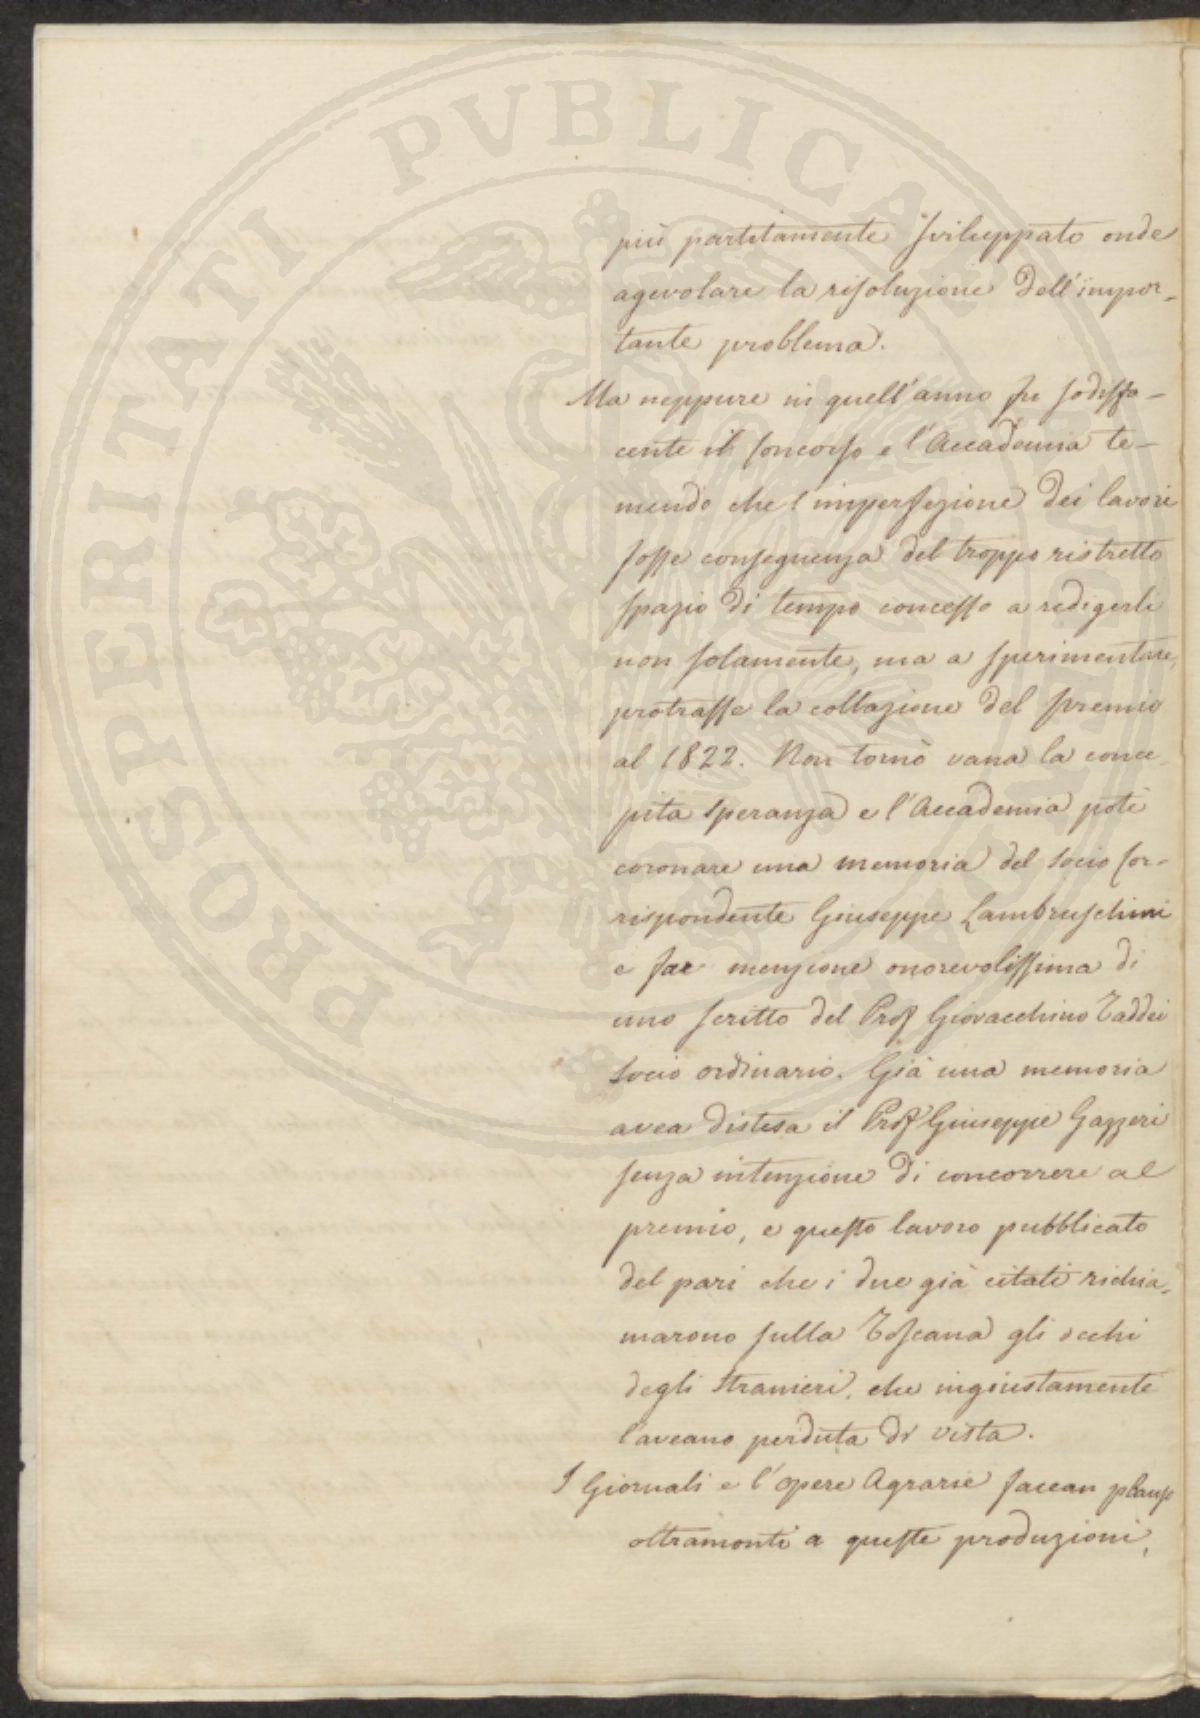 PROSPERITATI PUBLICAE AUGENDAE
più partitamente sviluppato onde
agevolare la risoluzione dell'impor-
tante problema.
Ma neppure in quell'anno fu sodisfa-
cente il concorso e l'Accademia te-
mendo che l'imperfezione dei lavori
fosse conseguenza del troppo ristretto
spazio di tempo concesso a redigerli
non solamente, ma a sperimentare,
protrasse la collazione del premio
al 1822. Non tornò vana la conce-
pita speranza e l'Accademia potè
coronare una memoria del socio cor-
rispondente Giuseppe Lambruschini
e far menzione onorevolissima di
uno scritto del Prof Giovacchino Taddei
socio ordinario. Già una memoria
avea distesa il Prof Giuseppe Gazzeri
senza intenzione di concorrere al
premio, e questo lavoro pubblicato
del pari che i due già citati richia-
marono sulla Toscana gli occhi
degli stranieri, che ingiustamente
l'aveano perduta di vista.
I Giornali e l'opere Agrarie facean plauso
oltramonti a queste produzioni,